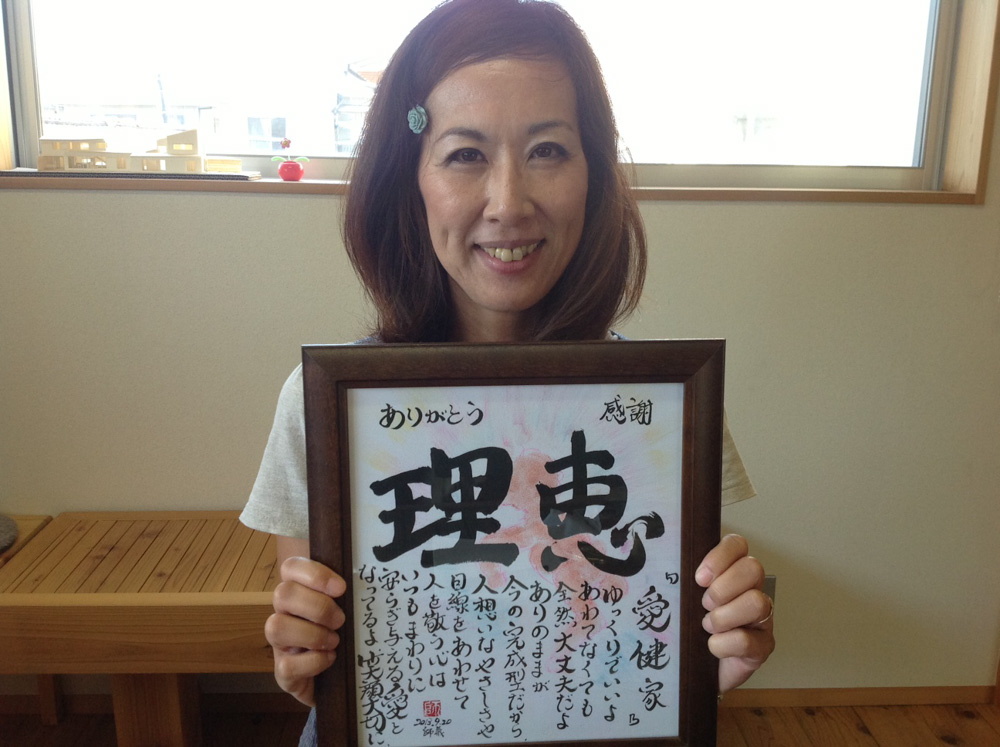 ありがとう
感謝
理恵
『愛健家』
ゆっくりでいいよ
あわてなくても
全然大丈夫だよ
ありのままが
今の完成型だから
人想いなやさしさや
目線をあわせて
人を敬う心は
いつもまわりに
安らぎ与える愛と
なってるよ 笑顔大切に
師
2013.9.20